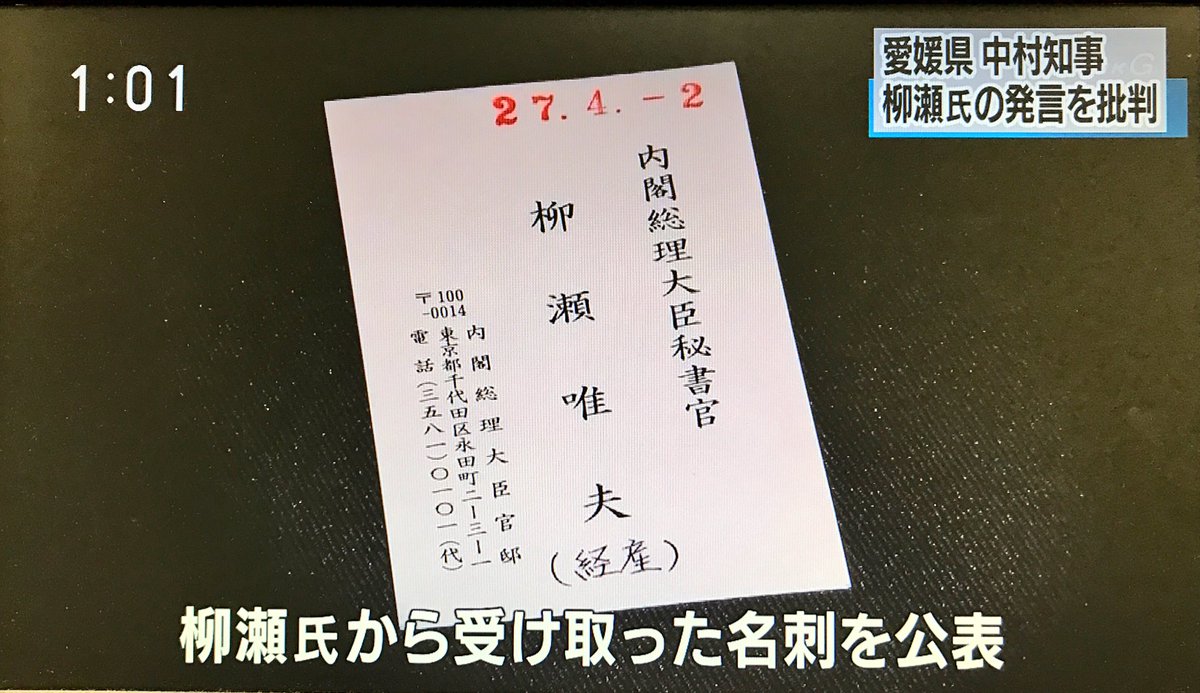 1:01
愛媛県 中村知事
柳瀬氏の発言を批判
27.4.-2
内閣総理大臣秘書官
柳瀬唯夫
(経産)
〒100
-0014
内閣総理大臣官邸
東京都千代田区永田町二ー三ー一
電話(三五八一)〇一〇一(代)
柳瀬氏から受け取った名刺を公表